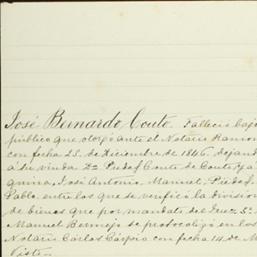 José Bernardo Couto. Falleció bajo
público que otorgó ante el Notario Ramon
con fecha 25 de Diciembre de 1846, dejand
á su viuda Dª Piedad Couto de Couto, y á
José Antonio, Manuel, Piedad,
Pablo, entre los que se verificó la division
de bienes que por mandato del Juez Sº
Manuel Bermejo se protocolizó en los
Notario Carlos Carpio con fecha 14 de M